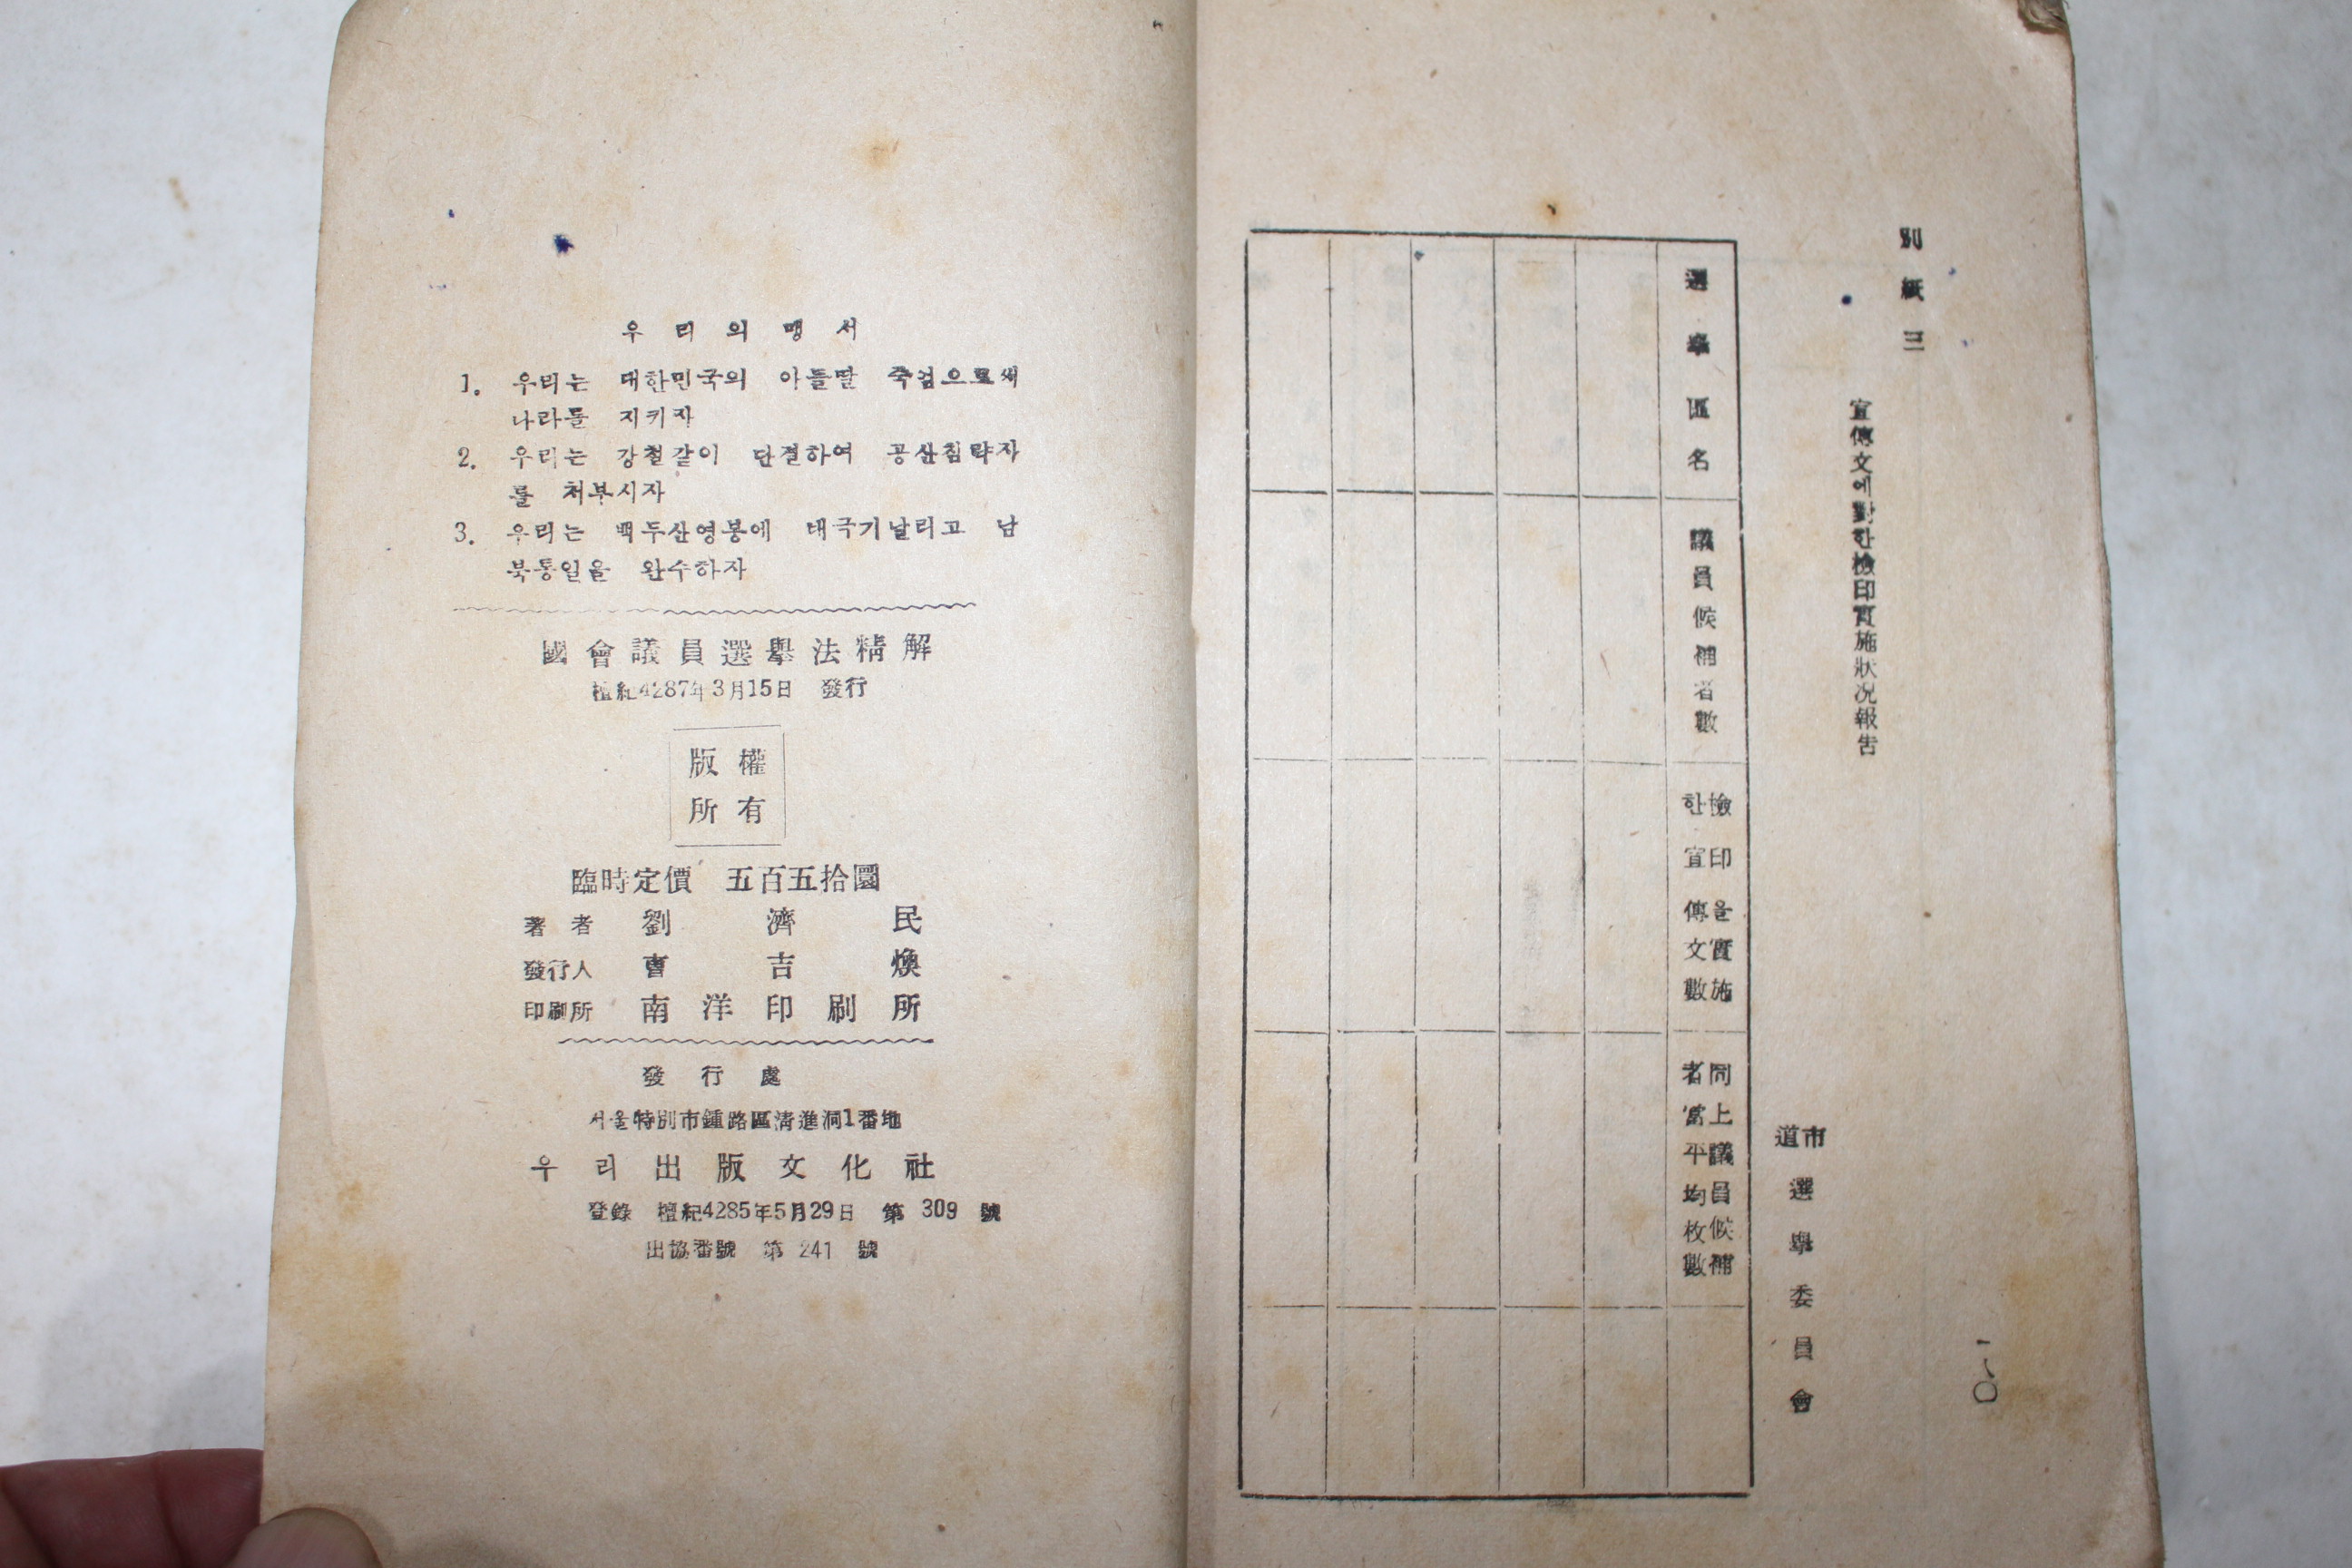 우리의 맹서
1. 우리는 대한민국의 아들딸 죽검으로써
나라를 지키자
2. 우리는 강철같이 단결하여 공산침략자
를 처부시자
3. 우리는 백두산영봉에 태국기날리고 남
북통일을 완수하자
國會議員選擧法精解
檀紀4287年3月15日 發行
版權
所有
臨時定價 五百五拾圜
著者 劉濟民
發行人 曺吉煥
印刷所 南洋印刷所
發行處
서울特別市鍾路區淸進洞1番地
우리出版文化社
登錄 檀紀4285年5月29日 第309號
出協番號 第241號
別紙三
宣傳文에對한檢印實施狀況報告
市
道
選擧委員會
選擧區名
議員候補者數
檢印을實施
한宣傳文數
同上議員候補
者當平均枚數